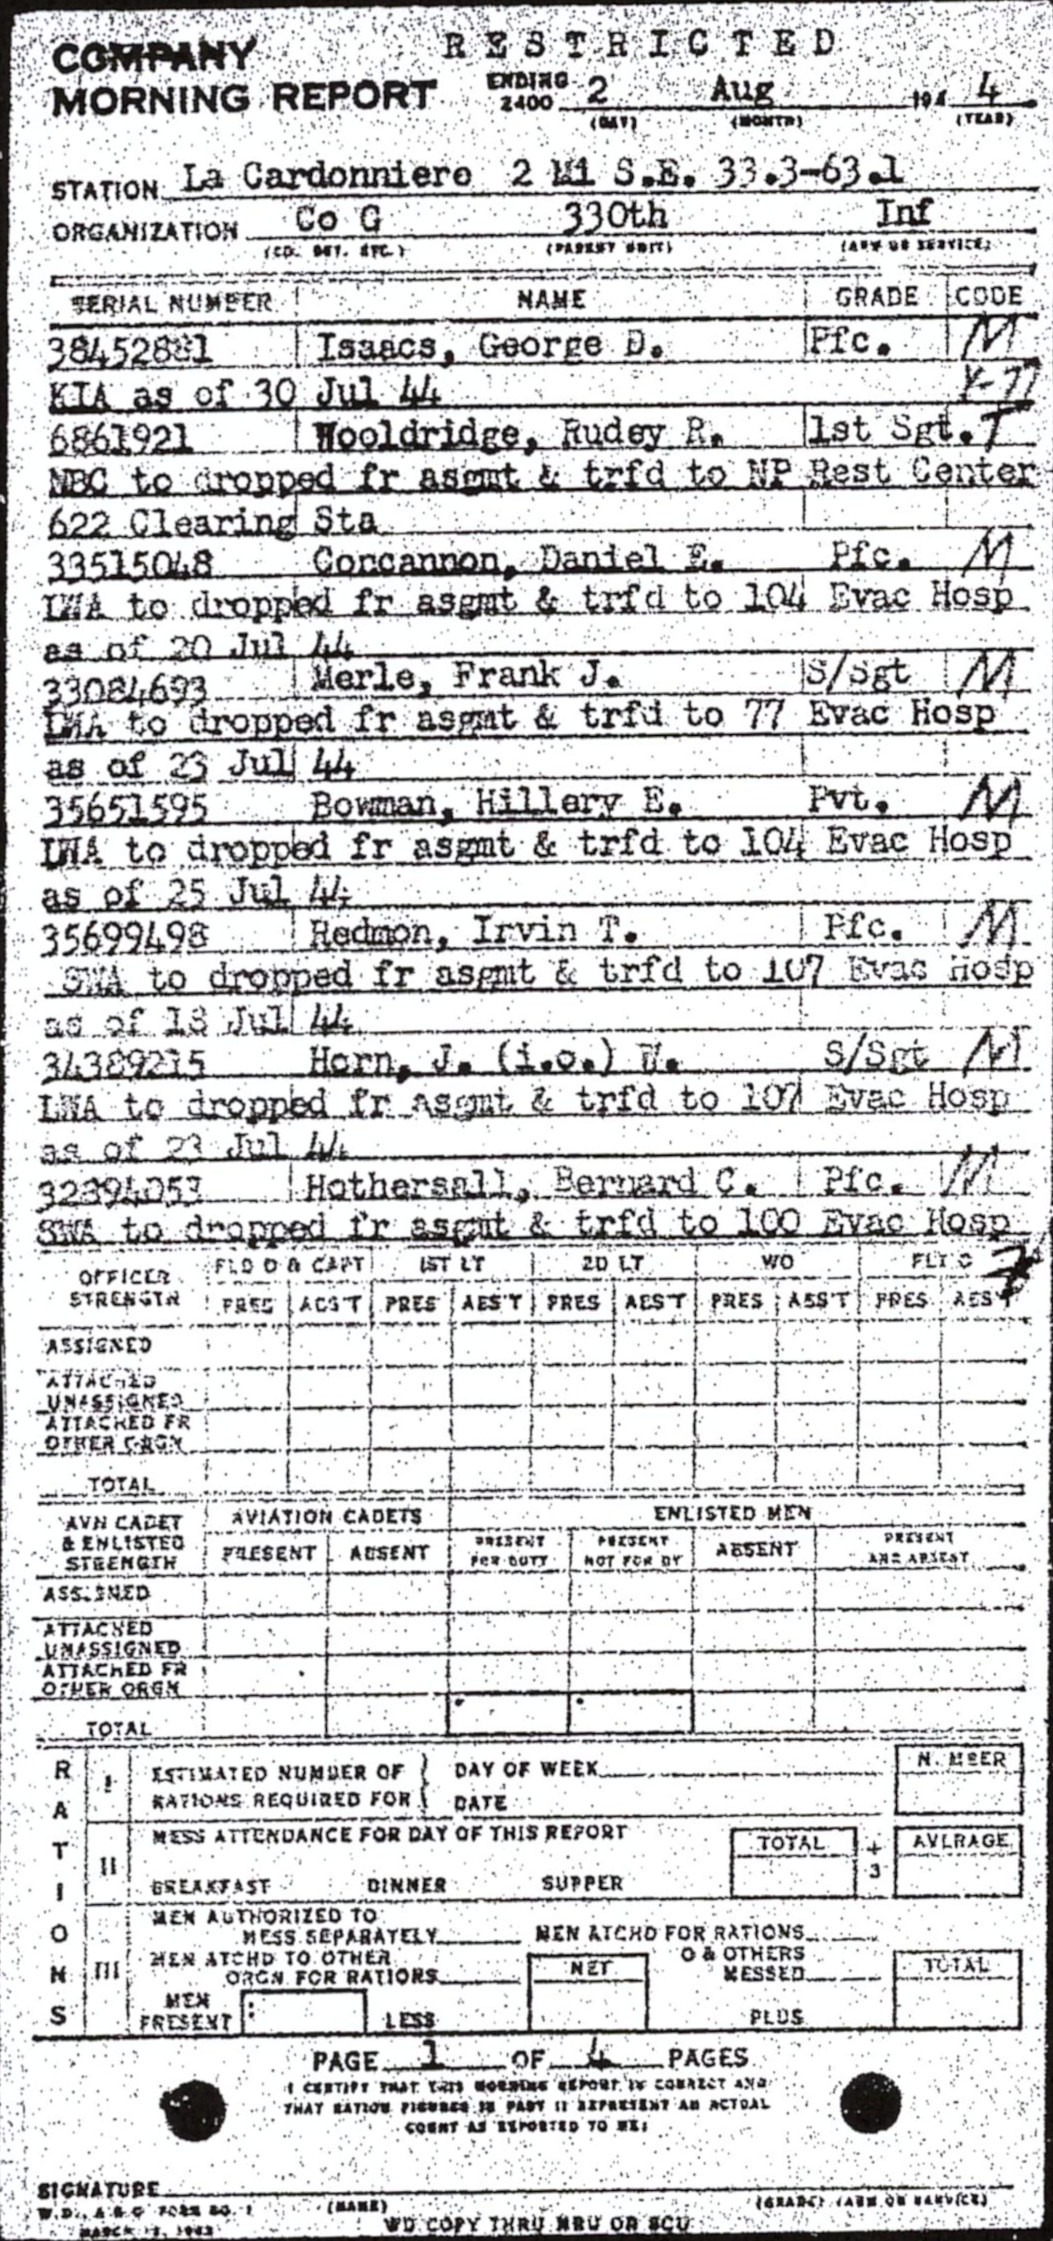 RESTRICTED
COMPANY
MORNING REPORT ENDING 2400 2 Aug 194 4
(DAY) (MONTH) (YEAR)
STATION La Cardonniere 2 Mi S.E. 33.3-63.1
ORGANIZATION Co G 330th Inf
(CO. DET. ETC.) (PARENT UNIT) (ARM OR SERVICE)
SERIAL NUMBER NAME GRADE CODE
38452881 Isaacs, George D. Pfc. M
KIA as of 30 Jul 44 Y-77
6861921 Wooldridge, Rudey R. 1st Sgt. T
NBC to dropped fr asgmt & trfd to NP Rest Center
622 Clearing Sta
33515048 Concannon, Daniel E. Pfc. M
LWA to dropped fr asgmt & trfd to 104 Evac Hosp
as of 20 Jul 44
33084693 Merle, Frank J. S/Sgt M
LWA to dropped fr asgmt & trfd to 77 Evac Hosp
as of 23 Jul 44
35651595 Bowman, Hillery E. Pvt. M
LWA to dropped fr asgmt & trfd to 104 Evac Hosp
as of 25 Jul 44
35699498 Redmon, Irvin T. Pfc. M
SWA to dropped fr asgmt & trfd to 107 Evac Hosp
as of 18 Jul 44
34389215 Horn, J. (i.o.) W. S/Sgt M
LWA to dropped fr asgmt & trfd to 107 Evac Hosp
as of 23 Jul 44
32894053 Hothersall, Bernard C. Pfc. M
SWA to dropped fr asgmt & trfd to 100 Evac Hosp
OFFICER STRENGTH FLD O & CAPT 1ST LT 2D LT WO FLT O
PRES ABS'T PRES ABS'T PRES ABS'T PRES ABS'T PRES ABS'T
ASSIGNED
ATTACHED
UNASSIGNED
ATTACHED FR
OTHER ORGN
TOTAL
AVN CADET & ENLISTED STRENGTH AVIATION CADETS ENLISTED MEN
PRESENT ABSENT PRESENT FOR DUTY PRESENT NOT FOR DY ABSENT PRESENT AND ABSENT
ASSIGNED
ATTACHED
UNASSIGNED
ATTACHED FR
OTHER ORGN
TOTAL
RATIONS
I ESTIMATED NUMBER OF DAY OF WEEK NUMBER
RATIONS REQUIRED FOR DATE
II MESS ATTENDANCE FOR DAY OF THIS REPORT TOTAL ÷ 3 AVERAGE
BREAKFAST DINNER SUPPER
III MEN AUTHORIZED TO
MESS SEPARATELY MEN ATCHD FOR RATIONS
MEN ATCHD TO OTHER
ORGN FOR RATIONS NET O & OTHERS MESSED TOTAL
MEN PRESENT LESS PLUS
PAGE 1 OF 4 PAGES
I CERTIFY THAT THIS MORNING REPORT IS CORRECT AND
THAT RATION FIGURES IN PART II REPRESENT AN ACTUAL
COUNT AS REPORTED TO ME:
SIGNATURE
(NAME) (GRADE) (ARM OR SERVICE)
W.D., A.G.O. FORM NO. 1
MARCH 12, 1943
WD COPY THRU MRU OR SCU